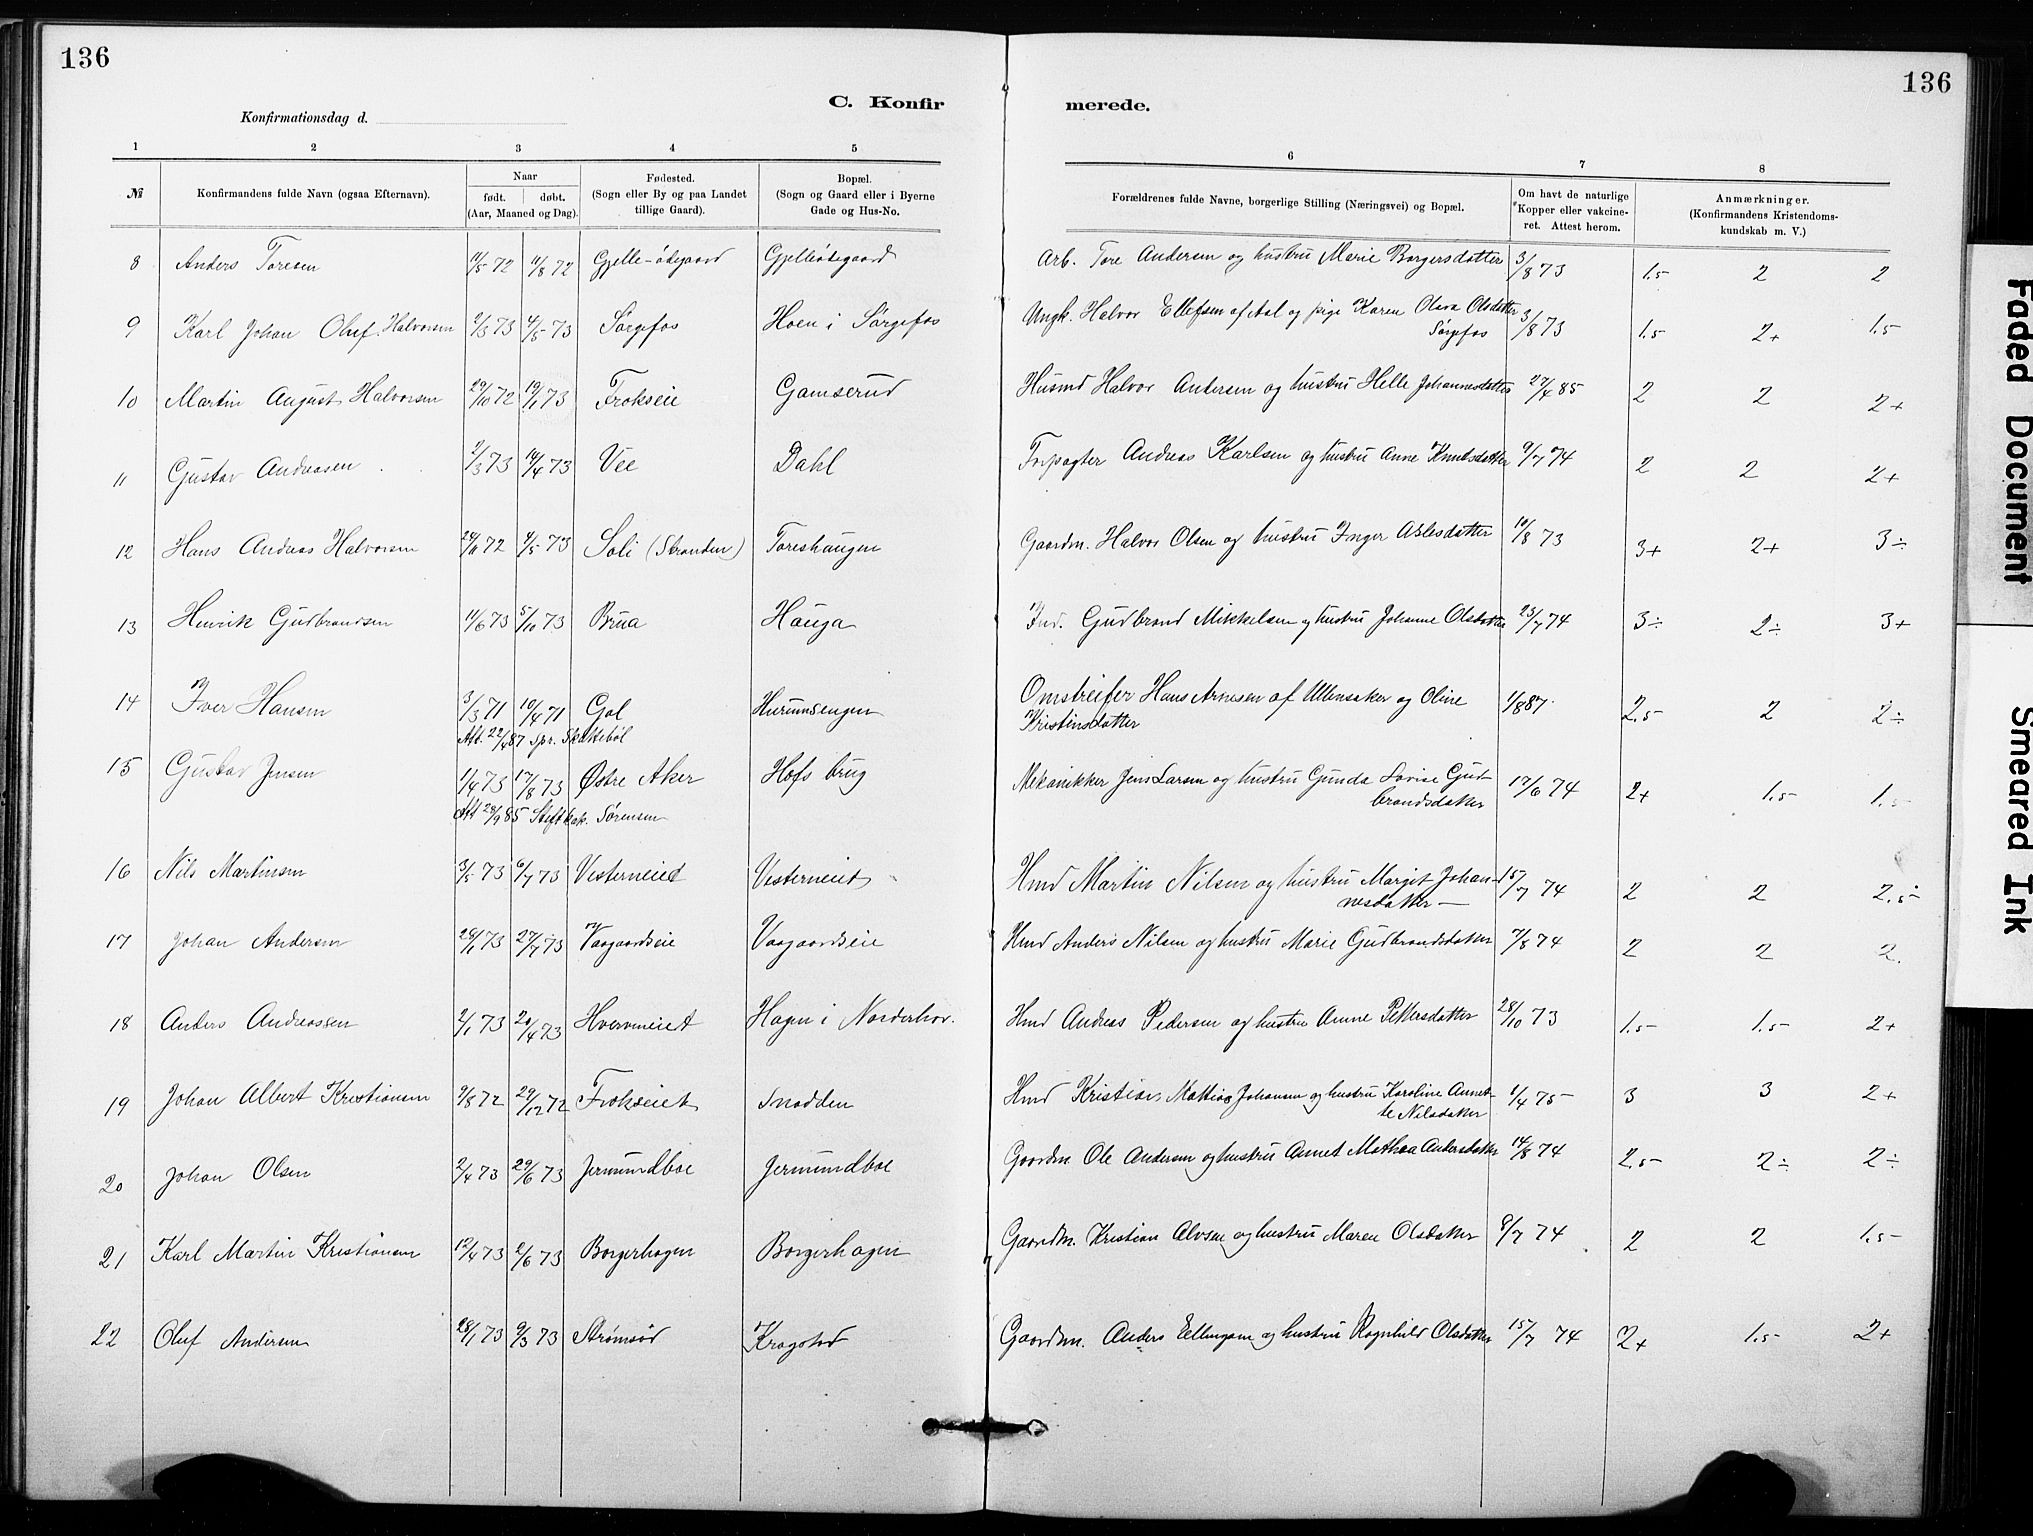 136
136
C. Konfir
merede.
Konfirmationsdag d.
1 2 3 4 5 6 7 8
№ Konfirmandens fulde Navn (ogsaa Efternavn). Naar født. døbt. (Aar, Maaned og Dag). Fødested. (Sogn eller By og paa Landet tillige Gaard). Bopæl. (Sogn og Gaard eller i Byerne Gade og Hus-No. Forældrenes fulde Navne, borgerlige Stilling (Næringsvei) og Bopæl. Om havt de naturlige Kopper eller vakcineret. Attest herom. Anmærkninger. (Konfirmandens Kristendomskundskab m. V.)
8 Anders Toresen 11/5 72 11/8 72 Gjelle-ødegaard Gjelleødegaard Arb. Tore Andersen og hustru Marie Borgersdatter 3/8 73 1.5 2 2
9 Karl Johan Oluf Halvorsen 2/3 73 4/5 73 Sørgefos Hoen i Sørgefos Ungk. Halvor Ellefsen af Aal og pige Karen Olava Olsdatter 3/8 73 1.5 2+ 1.5
Sørgefos
10 Martin August Halvorsen 29/10 72 19/1 73 Frokseie Gamserud Husmd Halvor Andersen og hustru Helle Johannesdatter 27/4 85 2 2 2+
11 Gustav Andreasen 2/3 73 14/4 73 Vee Dahl Forpagter Andreas Karlsen og hustru Anne Knutsdatter 9/7 74 2 2 2+
12 Hans Andreas Halvorsen 72 4/5 73 Soli (Stranden) Toreshaugen Gaardm. Halvor Olsen og hustru Inger Aslesdatter 10/8 73 3+ 2+ 3÷
13 Henrik Gudbrandsen 11/6 73 5/10 73 Brua Hauga Ind. Gudbrand Mikkelsen og hustru Johanne Olsdatter 23/7 74 3÷ 2÷ 3+
14 Iver Hansen 3/3 71 10/4 71 Gol Hurumsengen Omstreifer Hans Arnesen af Ullensaker og Oline 1/8 87 2.5 2 2÷
Kristinsdatter
Att. 22/4 87 spr. Skattebøl
15 Gustav Jensen 1/4 73 17/8 73 Østre Aker Hofs brug Mekanikker Jens Larsen og hustru Gunda Lovise Gud- 17/6 74 2+ 1.5 1.5
brandsdatter
Att 28/9 85 Stiftkap. Sørensen
16 Nils Martinsen 3/5 73 6/7 73 Vesterneiet Vesterneiet Hmd Martin Nilsen og hustru Margit Johan- 15/7 74 2 2 2.5÷
nesdatter
17 Johan Andersen 28/1 73 27/7 73 Vaagaardseie Vaagaardseie Hmd Anders Nilsen og hustru Marie Gudbrandsdatter 7/8 74 2 2 2.
18 Anders Andreassen 2/1 73 20/4 73 Hvervneiet Hagen i Norderhov. Hmd Andreas Pedersen og hustru Anne Pettersdatter 28/10 73 1.5 1.5 2+
19 Johan Albert Kristiansen 9/8 72 29/12 72 Frokseiet Snadden Hmd Kristian Mattias Johansen og hustru Karoline Annet- 1/4 75 3 3 2+
te Nilsdatter
20 Johan Olsen 2/4 73 29/6 73 Jermundboe Jermundboe Gaardm Ole Andersen og hustru Annet Mathea Andersdatter 14/8 74 2.5 2÷ 2÷
21 Karl Martin Kristiansen 12/4 73 2/6 73 Borgerhagen Borgerhagen Gaardm. Kristian Alvsen og hustru Maren Olsdatter 8/7 74 2 2 1.5
22 Oluf Andersen 28/1 73 9/3 73 Strømsød Kragstad Gaardm. Anders Ellingsen og hustru Ragnhild Olsdatter 15/7 74 2+ 1.5 2+
Faded Document
Smeared Ink